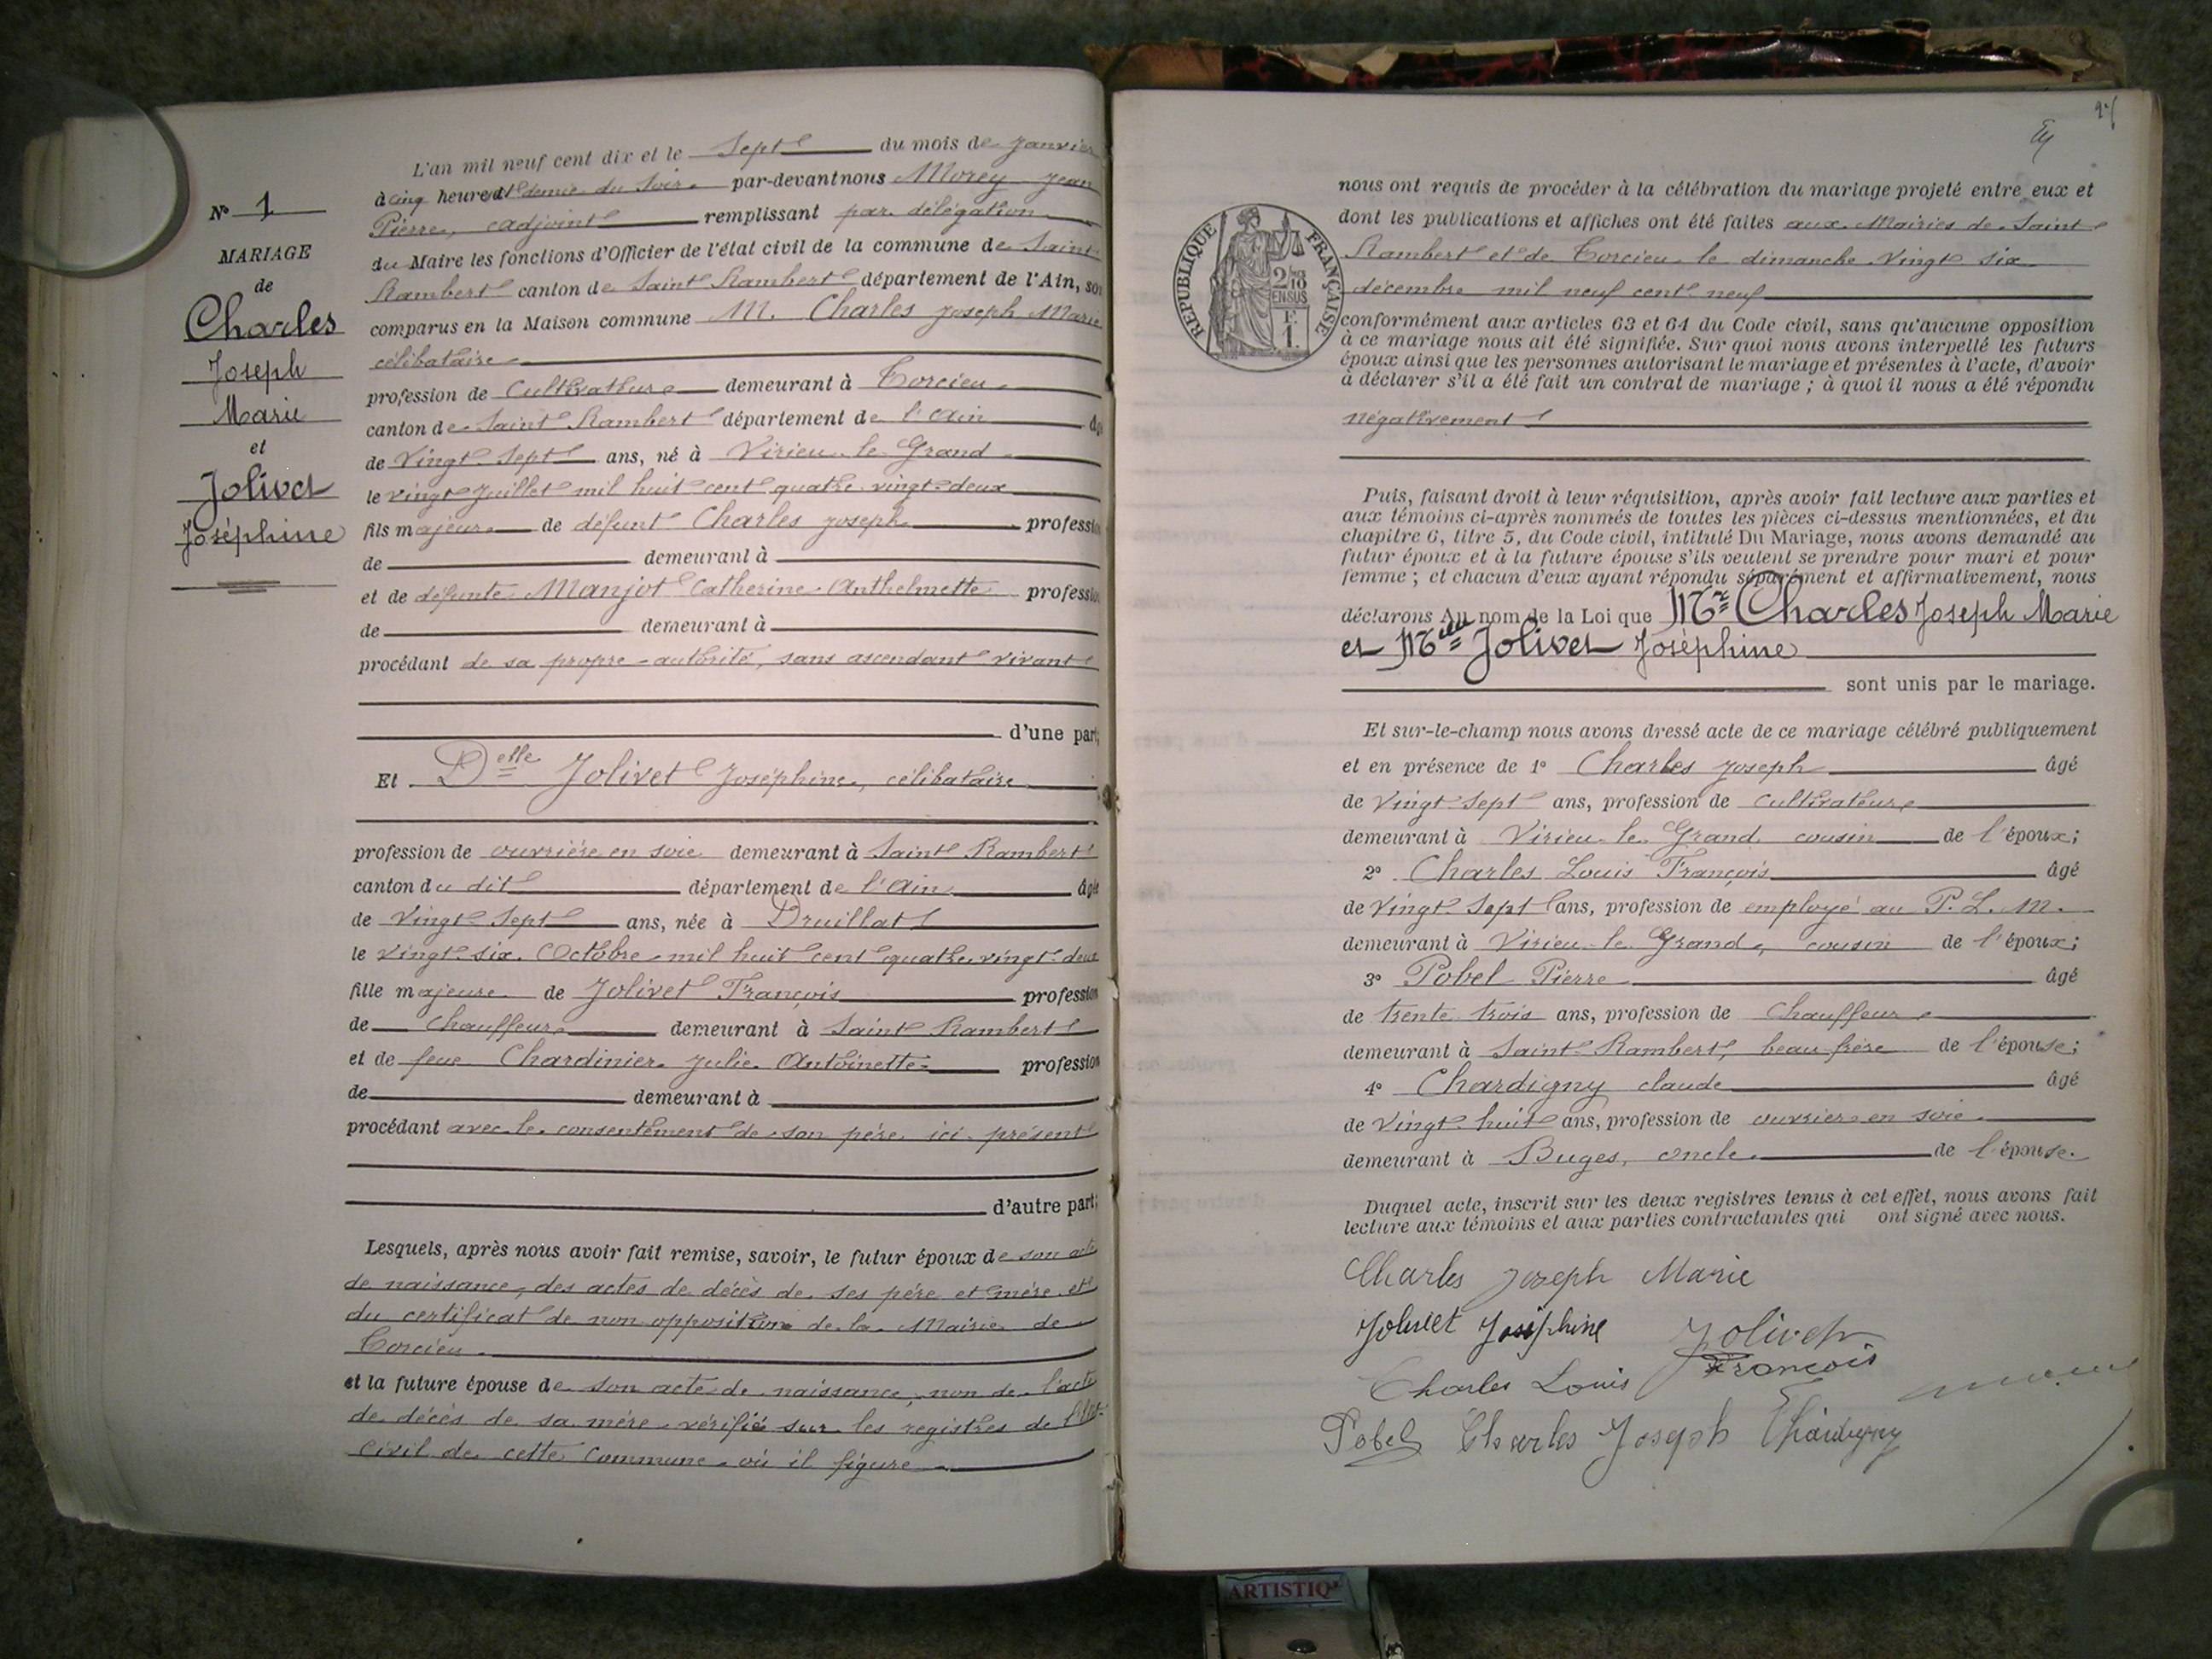 N° 1
MARIAGE
de
Charles
Joseph
Marie
et
Jolivet
Joséphine
L'an mil neuf cent dix et le Sept du mois de Janvier
à cinq heures et demie du Soir par-devant nous Morey Jean
Pierre, adjoint remplissant par délégation
du Maire les fonctions d'Officier de l'état civil de la commune de Saint
Rambert canton de Saint Rambert département de l'Ain, son
comparus en la Maison commune M. Charles Joseph Marie
célibataire
profession de Cultivateur demeurant à Torcieu
canton de Saint Rambert département de l'Ain âgé
de Vingt Sept ans, né à Virieu le Grand
le vingt Juillet mil huit cent quatre vingt deux
fils majeur de défunt Charles Joseph profession
de demeurant à
et de défunte Manjot Catherine Anthelmette profession
de demeurant à
procédant de sa propre autorité, sans ascendant vivant
d'une part;
Et Delle Jolivet Joséphine, célibataire
profession de ouvrière en soie demeurant à Saint Rambert
canton du dit département de l'Ain âgée
de Vingt Sept ans, née à Druillat
le vingt six Octobre mil huit cent quatre vingt deux
fille majeure de Jolivet François profession
de Chauffeur demeurant à Saint Rambert
et de feue Chardinier Julie Antoinette profession
de demeurant à
procédant avec le consentement de son père ici présent
d'autre part;
Lesquels, après nous avoir fait remise, savoir, le futur époux de son acte
de naissance, des actes de décès de ses père et mère et
du certificat de non opposition de la Mairie de
Torcieu
et la future épouse de son acte de naissance, non de l'acte
de décès de sa mère vérifié sur les registres de l'Etat
Civil de cette Commune où il figure
nous ont requis de procéder à la célébration du mariage projeté entre eux et
dont les publications et affiches ont été faites aux Mairies de Saint
Rambert et de Torcieu le dimanche Vingt six
décembre mil neuf cent neuf
RÉPUBLIQUE FRANÇAISE
2/10
EN SUS
1 F.
conformément aux articles 63 et 64 du Code civil, sans qu'aucune opposition
à ce mariage nous ait été signifiée. Sur quoi nous avons interpellé les futurs
époux ainsi que les personnes autorisant le mariage et présentes à l'acte, d'avoir
à déclarer s'il a été fait un contrat de mariage ; à quoi il nous a été répondu
négativement
Puis, faisant droit à leur réquisition, après avoir fait lecture aux parties et
aux témoins ci-après nommés de toutes les pièces ci-dessus mentionnées, et du
chapitre 6, titre 5, du Code civil, intitulé Du Mariage, nous avons demandé au
futur époux et à la future épouse s'ils veulent se prendre pour mari et pour
femme ; et chacun d'eux ayant répondu séparément et affirmativement, nous
déclarons Au nom de la Loi que Mr Charles Joseph Marie
et Melle Jolivet Joséphine
sont unis par le mariage.
Et sur-le-champ nous avons dressé acte de ce mariage célébré publiquement
et en présence de 1° Charles Joseph âgé
de Vingt Sept ans, profession de Cultivateur
demeurant à Virieu le Grand cousin de l'époux;
2° Charles Louis François âgé
de Vingt Sept ans, profession de employé au P. L. M.
demeurant à Virieu le Grand, cousin de l'époux;
3° Pobel Pierre âgé
de trente trois ans, profession de Chauffeur
demeurant à Saint Rambert, beau frère de l'épouse;
4° Chardigny claude âgé
de Vingt huit ans, profession de ouvrier en soie
demeurant à Buges, oncle de l'épouse.
Duquel acte, inscrit sur les deux registres tenus à cet effet, nous avons fait
lecture aux témoins et aux parties contractantes qui ont signé avec nous.
Charles Joseph Marie
Jolivet Joséphine Jolivet
François
Charles Louis
Pobel Charles Joseph Chardigny
ARTISTIQ